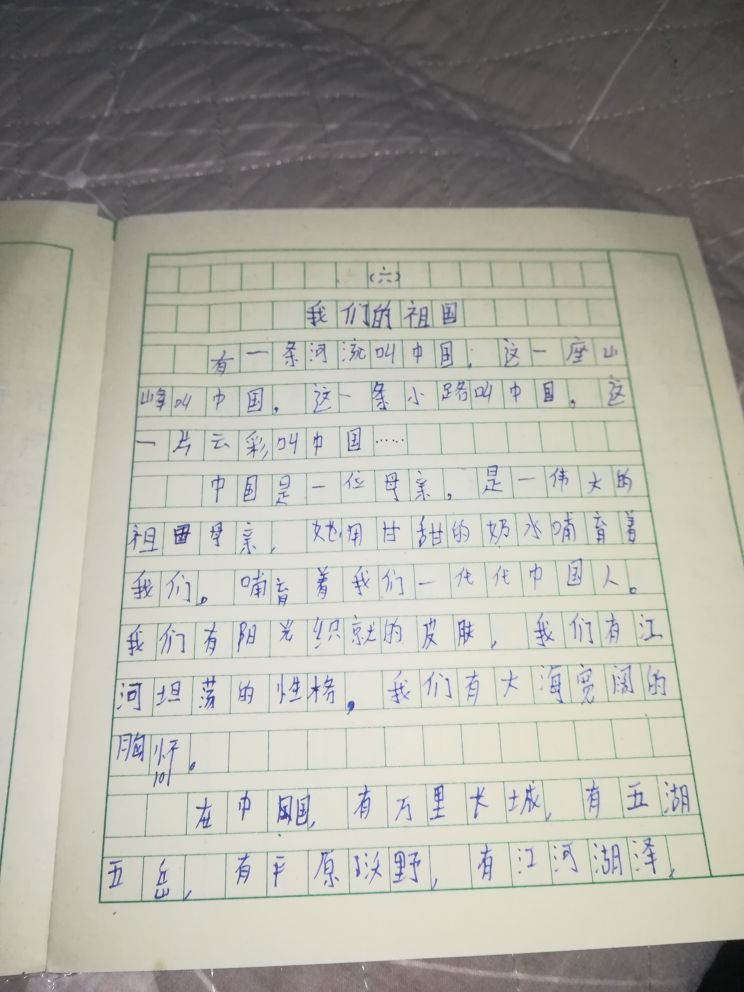 （六）
我们的祖国
有一条河流叫中国；这一座山
峰叫中国。这一条小路叫中国。这
一片云彩叫中国……
中国是一位母亲。是一伟大的
祖国母亲，她用甘甜的奶水哺育着
我们。哺育着我们一代代中国人。
我们有阳光织就的皮肤，我们有江
河坦荡的性格，我们有大海宽阔的
胸怀。
在中国，有万里长城，有五湖
五岳，有平原沃野，有江河湖泽，